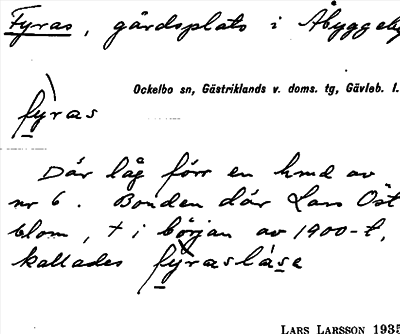 Fyras, gårdsplats i Åbyggeby
Ockelbo sn, Gästriklands v. doms. tg, Gävleb. l.
fyras
Där låg förr en hmd av
nr 6. Bonden där Lars Öst
blom, † i början av 1900-t,
kallades fyraslàse
LARS LARSSON 1935